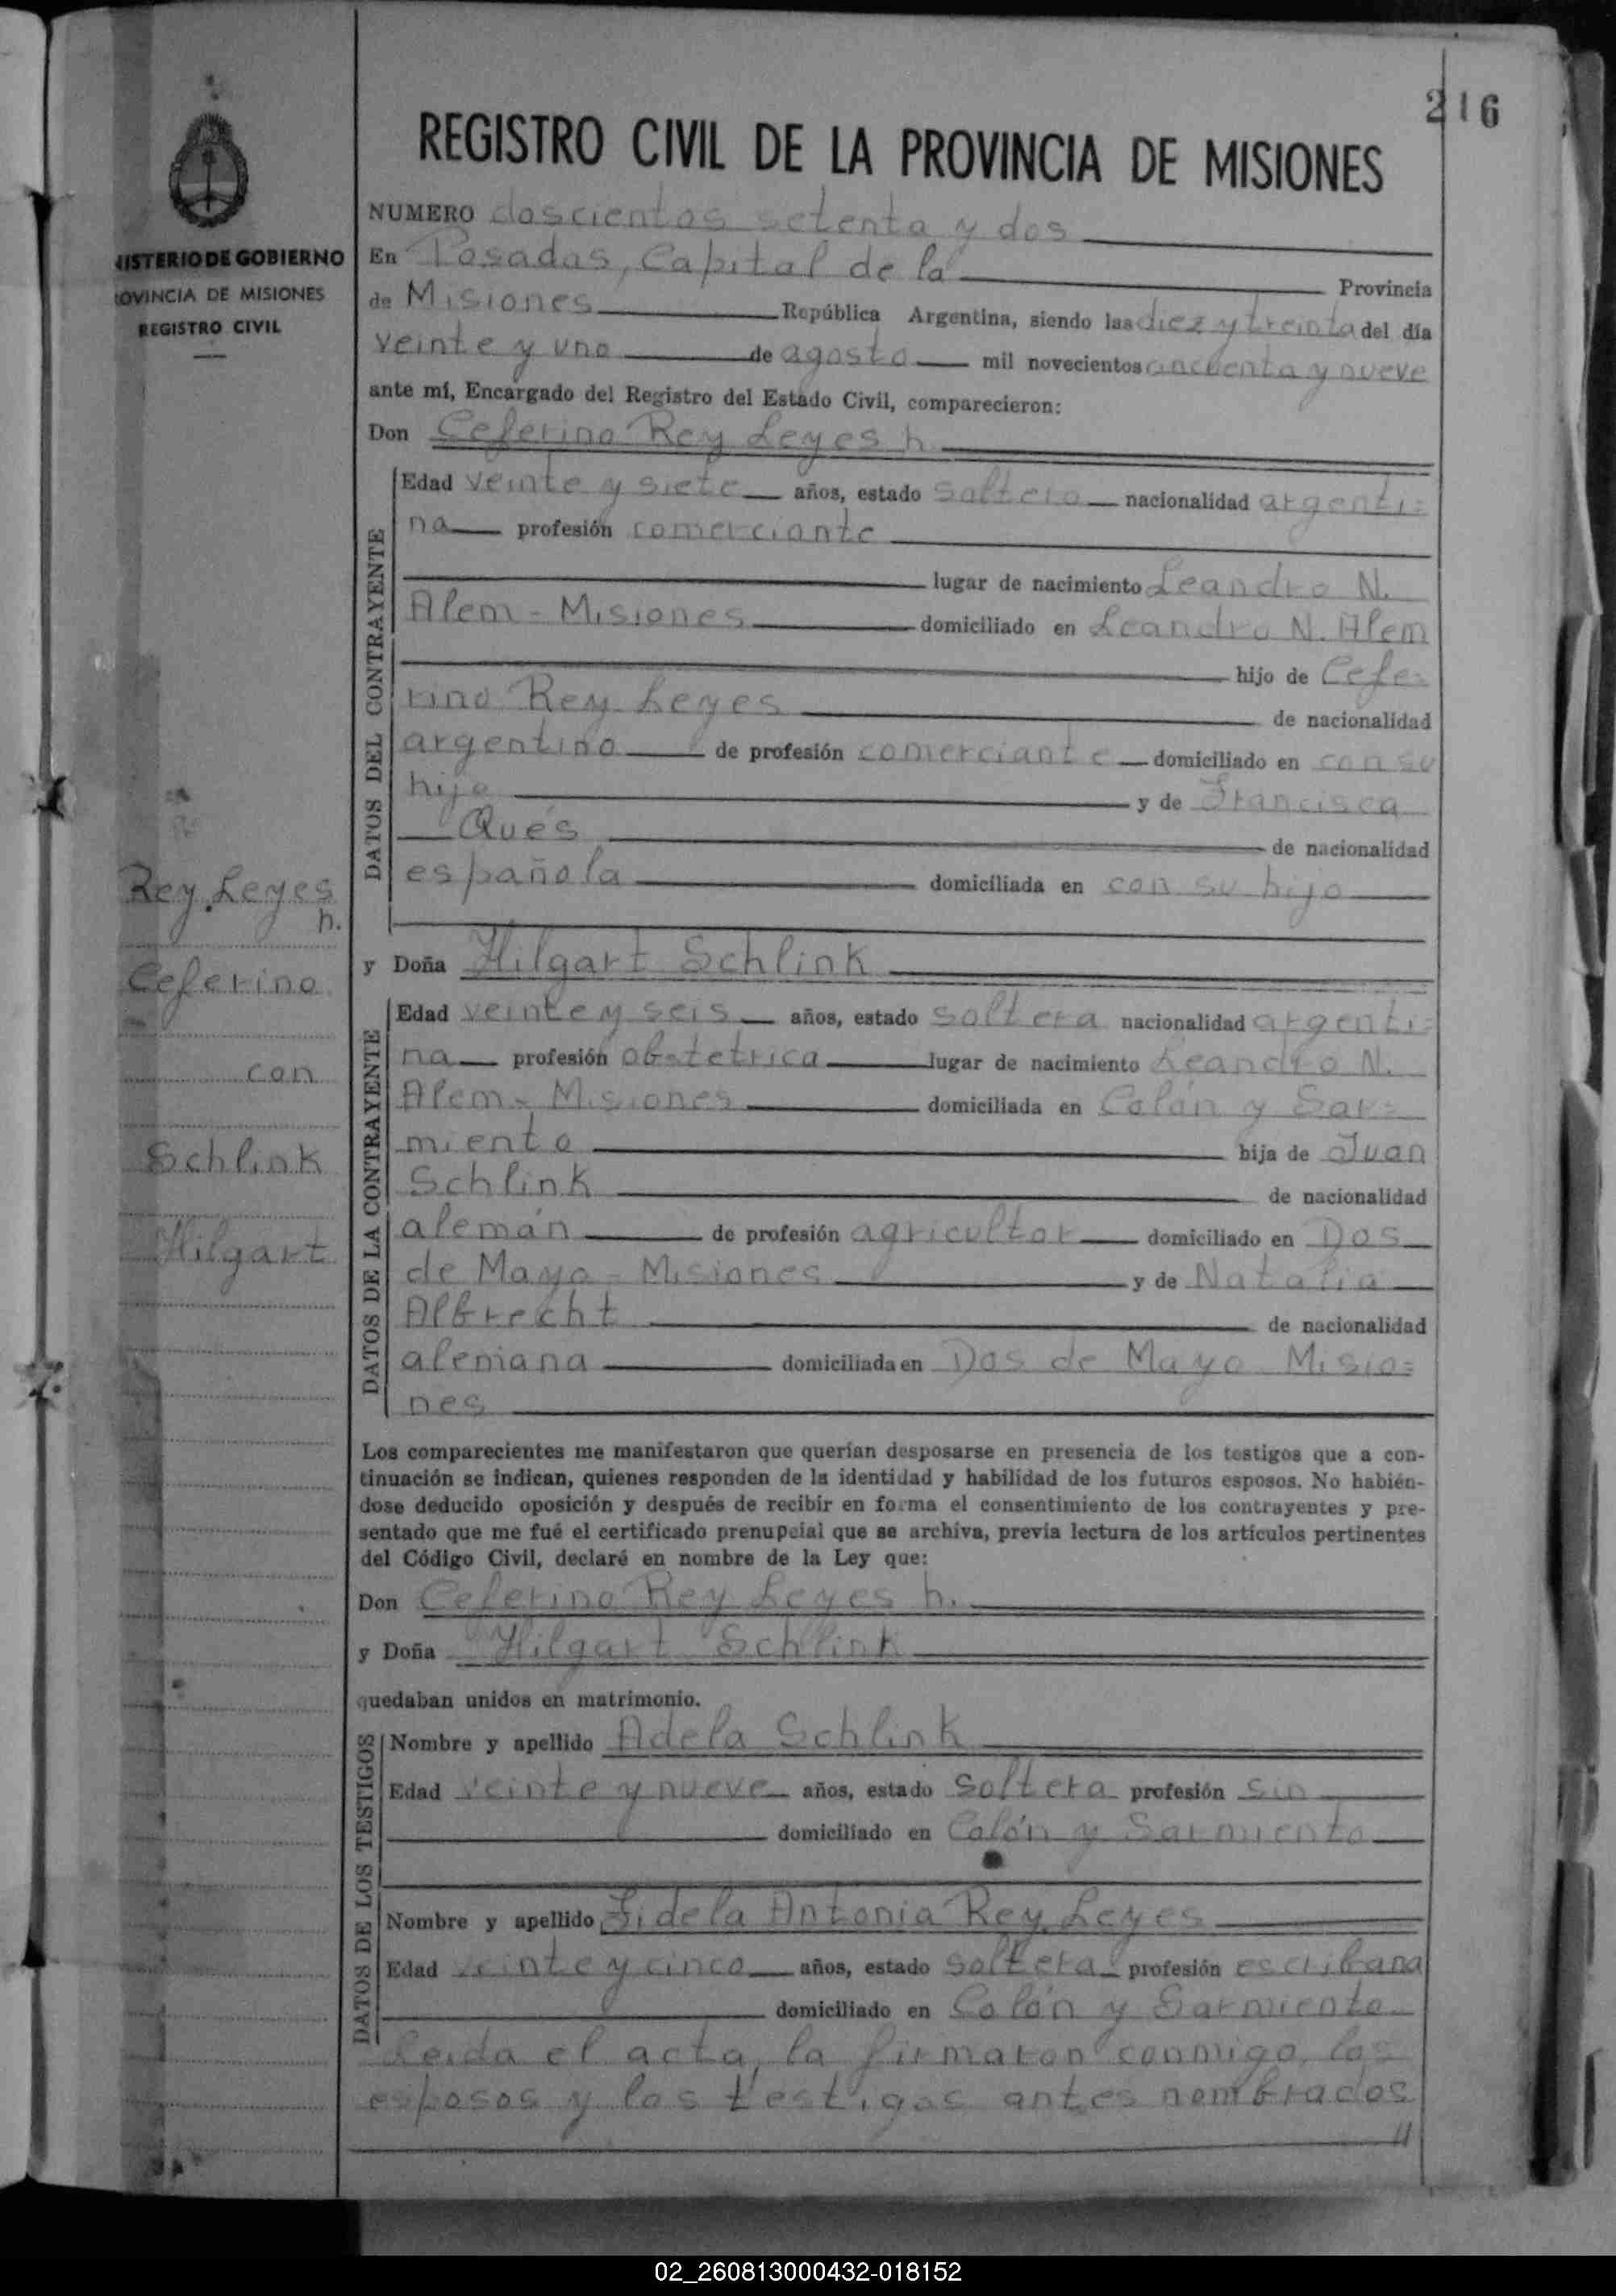 216
REGISTRO CIVIL DE LA PROVINCIA DE MISIONES
NUMERO doscientos setenta y dos
En Posadas, Capital de la Provincia
de Misiones República Argentina, siendo las diez y treinta del día
veinte y uno de agosto mil novecientos cincuenta y nueve
ante mí, Encargado del Registro del Estado Civil, comparecieron:
Don Ceferino Rey Leyes h.
DATOS DEL CONTRAYENTE
Edad veinte y siete años, estado soltero nacionalidad argenti=
na profesión comerciante
lugar de nacimiento Leandro N.
Alem - Misiones domiciliado en Leandro N. Alem
hijo de Cefe=
rino Rey Leyes de nacionalidad
argentino de profesión comerciante domiciliado en con su
hijo y de Francisca
Qués de nacionalidad
española domiciliada en con su hijo
y Doña Hilgart Schlink
DATOS DE LA CONTRAYENTE
Edad veinte y seis años, estado soltera nacionalidad argenti=
na profesión obstetrica lugar de nacimiento Leandro N.
Alem - Misiones domiciliada en Colón y Sar=
miento hija de Juan
Schlink de nacionalidad
alemán de profesión agricultor domiciliado en Dos
de Mayo - Misiones y de Natalia
Albrecht de nacionalidad
alemana domiciliada en Dos de Mayo Misio=
nes
Los comparecientes me manifestaron que querían desposarse en presencia de los testigos que a con-
tinuación se indican, quienes responden de la identidad y habilidad de los futuros esposos. No habién-
dose deducido oposición y después de recibir en forma el consentimiento de los contrayentes y pre-
sentado que me fué el certificado prenupcial que se archiva, previa lectura de los artículos pertinentes
del Código Civil, declaré en nombre de la Ley que:
Don Ceferino Rey Leyes h.
y Doña Hilgart Schlink
quedaban unidos en matrimonio.
DATOS DE LOS TESTIGOS
Nombre y apellido Adela Schlink
Edad veinte y nueve años, estado soltera profesión sin
domiciliado en Colón y Sarmiento
Nombre y apellido Fidela Antonia Rey Leyes
Edad veinte y cinco años, estado soltera profesión escribana
domiciliado en Colón y Sarmiento
Leída el acta, la firmaron conmigo, los
esposos y los testigos antes nombrados
//
NISTERIO DE GOBIERNO
ROVINCIA DE MISIONES
REGISTRO CIVIL
Rey Leyes
h.
Ceferino
con
Schlink
Hilgart
02_260813000432-018152